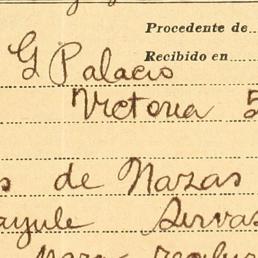 Procedente de
Recibido en
G Palacio
Victoria 5
s de Nazas
ayule Servas
para recibir